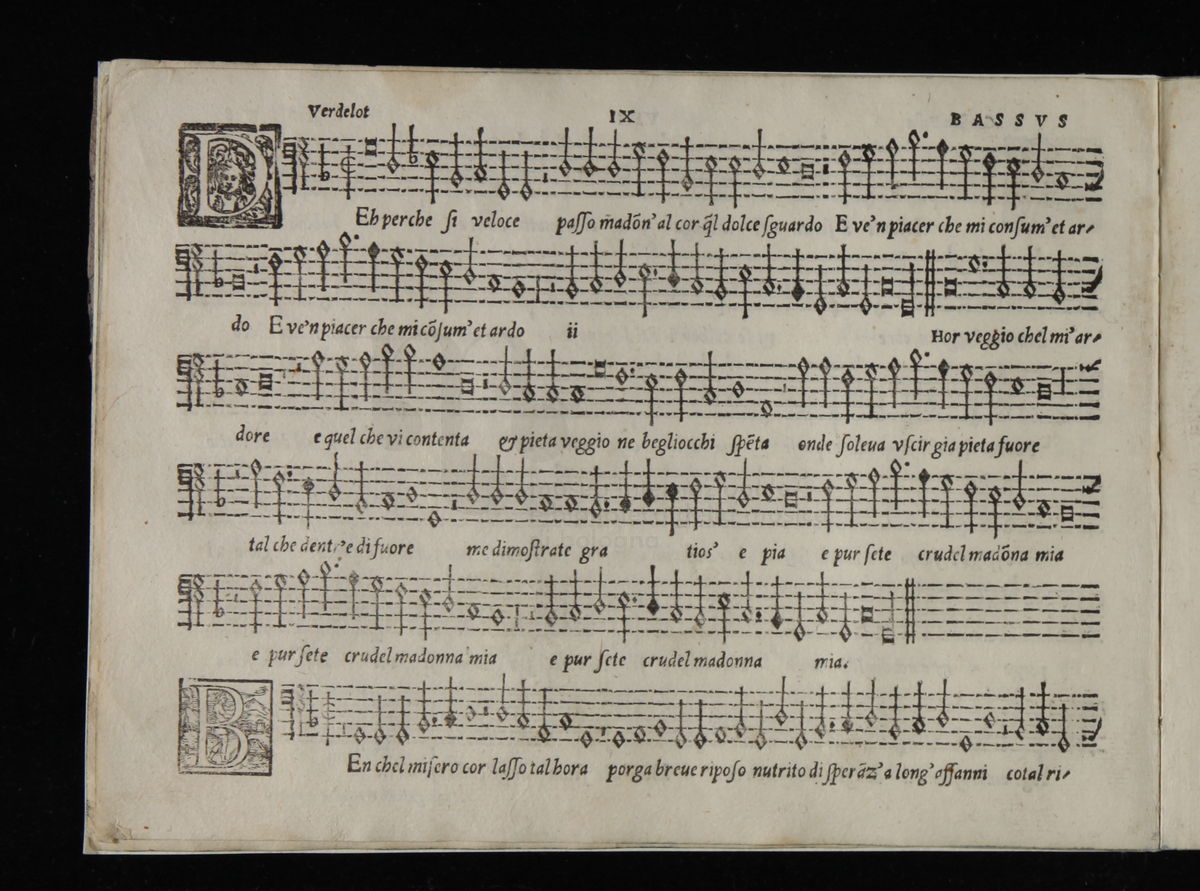 Verdelot IX BASSVS
D Eh perche ſi veloce paſſo madõn' al cor q̃l dolce ſguardo E ve'n piacer che mi conſum' et ar-
do E ve'n piacer che mi cõſum' et ardo ii Hor veggio chel mi' ar-
dore e quel che vi contenta & pieta veggio ne begliocchi ſpẽta onde ſoleua vſcir gia pieta fuore
tal che dentr'e di fuore me dimoſtrate gra tioſ' e pia e pur ſete crudel madõna mia
e pur ſete crudel madonna mia e pur ſete crudel madonna mia.
B En chel miſero cor laſſo tal hora porga breue ripoſo nutrito di ſperãz' a long' affanni cotal ri-